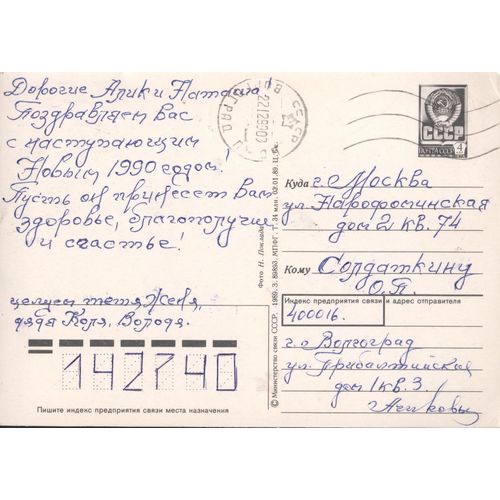 Дорогие Алик и Наташа!
Поздравляем Вас
с наступающим
Новым 1990 годом!
Пусть он принесет Вам
здоровье, благополучие
и счастье!
целуем тетя Женя,
дядя Коля, Володя.
142740
Пишите индекс предприятия связи места назначения
© Министерство связи СССР. 1989. З. 89893. МПФГ. Т. 34 млн. 02.01.89. Ц. 5 к.
СССР
ВОЛГОГРАД
СССР
ПОЧТА СССР
4
Куда г. Москва
ул. Нарофоминская
дом 2 кв. 74
Кому Солдаткину
О.П.
Индекс предприятия связи и адрес отправителя
400016.
г. Волгоград
ул. Прибалтийская
дом 1 кв. 3.